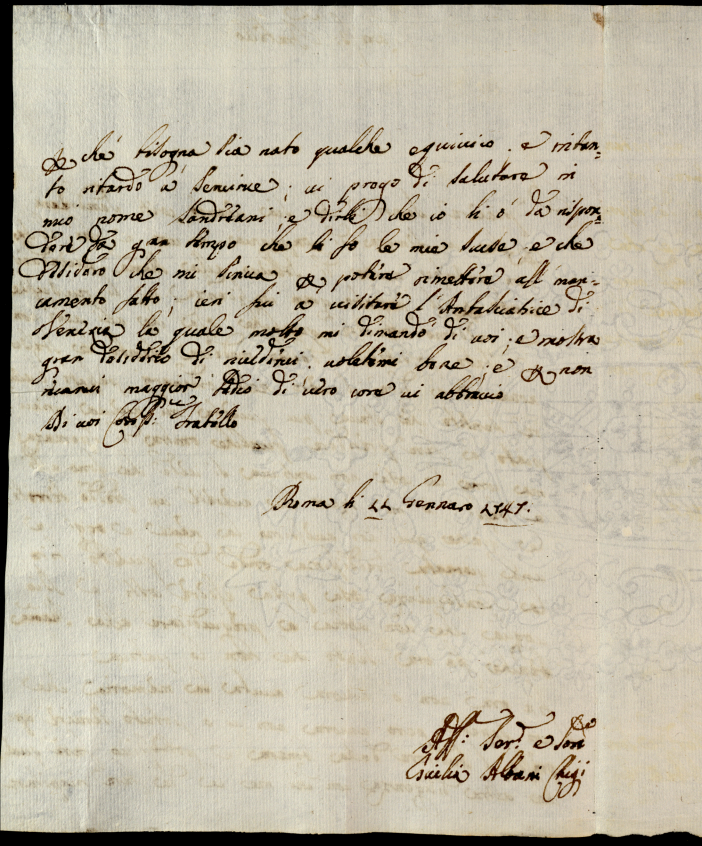 che bisogna sia nato qualche equivico. e intan=
to ritardo a servirve; vi prego di salutare in
mio nome Landriani, e dirle che io li ó da rispon=
dere da gran tempo che li fo le mie scuse e che
desidero che mi scriva potere rimettere all man=
camento fatto; ieri fui a visitare l'Ambasciatrice di
Venezia la quale molto mi dimandò di voi; e mostra
gran desiderio di rivedervi. voletemi bene, e non
recarvi maggior tedio di vero core vi abbracio
Di voi Fratello
Roma li 11 Gennaro 1747.
Aff: Ser. e Sore
Cicilia Albani Chigi